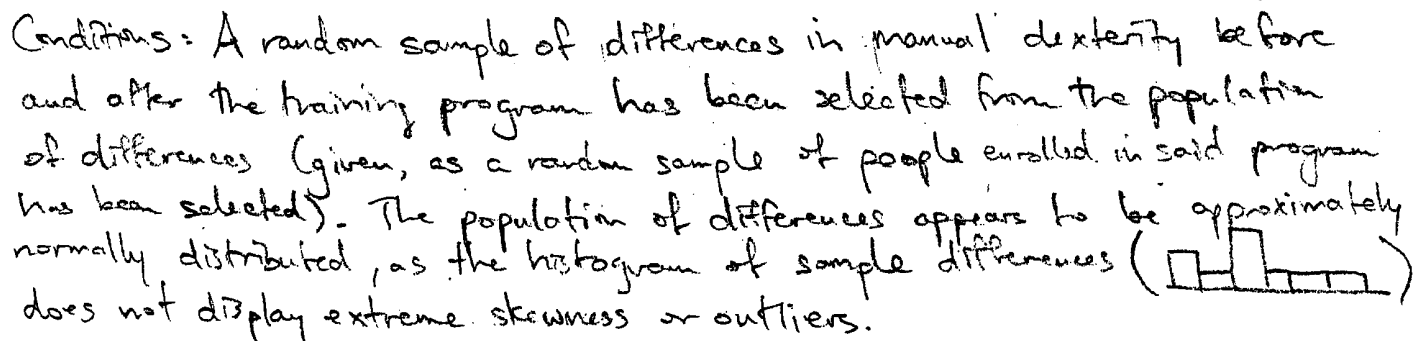 Conditions: A random sample of differences in manual dexterity before
and after the training program has been selected from the population
of differences (given, as a random sample of people enrolled in said program
has been selected). The population of differences appears to be approximately
normally distributed, as the histogram of sample differences ( )
does not display extreme skewness or outliers.